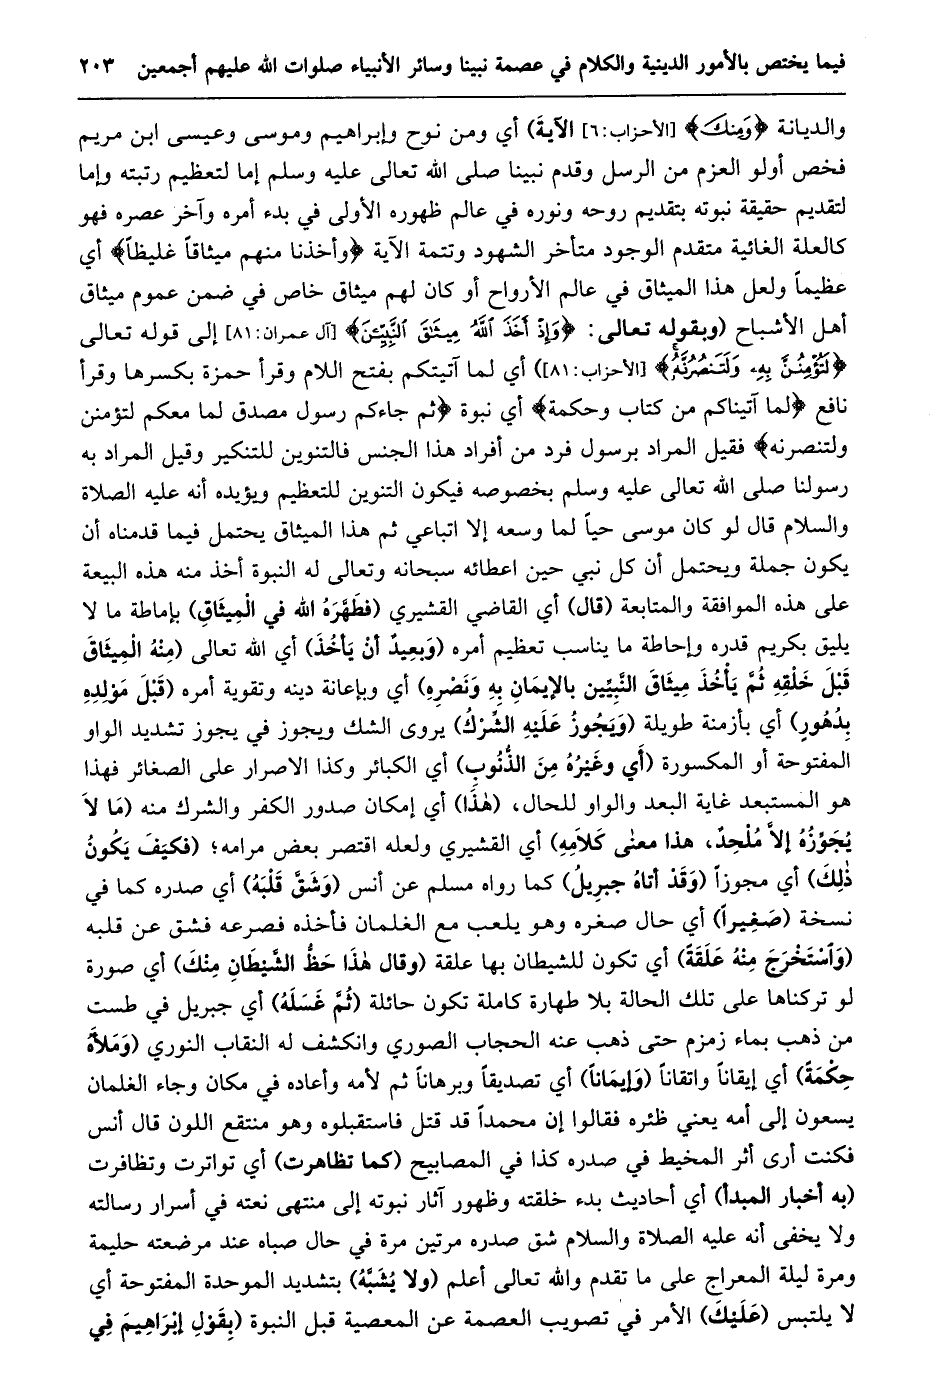 فيما يختص بالأمور الدينية والكلام في عصمة نبينا وسائر الأنبياء صلوات الله عليهم أجمعين ٢٠٣
والديانة ﴿وَمِنكَ﴾ [الأحزاب: ٦] الآية) أي ومن نوح وإبراهيم وموسى وعيسى ابن مريم
فخص أولو العزم من الرسل وقدم نبينا صلى الله تعالى عليه وسلم إما لتعظيم رتبته وإما
لتقديم حقيقة نبوته بتقديم روحه ونوره في عالم ظهوره الأولى في بدء أمره وآخر عصره فهو
كالعلة الغائية متقدم الوجود متأخر الشهود وتتمة الآية ﴿وأخذنا منهم ميثاقاً غليظاً﴾ أي
عظيماً ولعل هذا الميثاق في عالم الأرواح أو كان لهم ميثاق خاص في ضمن عموم ميثاق
أهل الأشباح (وبقوله تعالى: ﴿وَإِذْ أَخَذَ اللَّهُ مِيثَٰقَ النَّبِيِّۦنَ﴾ [آل عمران: ٨١] إلى قوله تعالى
﴿لَتُؤْمِنُنَّ بِهِۦ وَلَتَنصُرُنَّهُ﴾ [الأحزاب: ٨١]) أي لما آتيتكم بفتح اللام وقرأ حمزة بكسرها وقرأ
نافع ﴿لما آتيناكم من كتاب وحكمة﴾ أي نبوة ﴿ثم جاءكم رسول مصدق لما معكم لتؤمنن
ولتنصرنه﴾ فقيل المراد برسول فرد من أفراد هذا الجنس فالتنوين للتنكير وقيل المراد به
رسولنا صلى الله تعالى عليه وسلم بخصوصه فيكون التنوين للتعظيم ويؤيده أنه عليه الصلاة
والسلام قال لو كان موسى حياً لما وسعه إلا اتباعي ثم هذا الميثاق يحتمل فيما قدمناه أن
يكون جملة ويحتمل أن كل نبي حين اعطائه سبحانه وتعالى له النبوة أخذ منه هذه البيعة
على هذه الموافقة والمتابعة (قال) أي القاضي القشيري (فَطَهَّرَهُ الله في الْمِيثَاقِ) بإماطة ما لا
يليق بكريم قدره وإحاطة ما يناسب تعظيم أمره (وَبَعِيدٌ أنْ يَأْخُذَ) أي الله تعالى (مِنْهُ الْمِيثَاقَ
قَبْلَ خَلْقِهِ ثُمَّ يَأْخُذَ مِيثَاقَ النَّبِيِّين بالإيمَانِ بِهِ وَنَصْرِهِ) أي وبإعانة دينه وتقوية أمره (قَبْلَ مَوْلِدِهِ
بِدُهُورٍ) أي بأزمنة طويلة (وَيَجُوزُ عَلَيْهِ الشِّرْكُ) يروى الشك ويجوز في يجوز تشديد الواو
المفتوحة أو المكسورة (أي وغَيْرُهُ مِنَ الذُّنُوبِ) أي الكبائر وكذا الاصرار على الصغائر فهذا
هو المستبعد غاية البعد والواو للحال، (هٰذَا) أي إمكان صدور الكفر والشرك منه (مَا لاَ
يُجَوِّزُهُ إلاَّ مُلْحِدٌ، هذا معنٰى كَلاَمِهِ) أي القشيري ولعله اقتصر بعض مرامه؛ (فكيَفَ يَكُونُ
ذٰلِكَ) أي مجوزاً (وَقَدْ أتاهُ جبرِيلُ) كما رواه مسلم عن أنس (وَشَقَّ قَلْبَهُ) أي صدره كما في
نسخة (صَغِيراً) أي حال صغره وهو يلعب مع الغلمان فأخذه فصرعه فشق عن قلبه
(وَٱسْتَخْرَجَ مِنْهُ عَلَقَةً) أي تكون للشيطان بها علقة (وقال هٰذَا حَظُّ الشَّيْطَانِ مِنْكَ) أي صورة
لو تركناها على تلك الحالة بلا طهارة كاملة تكون حائلة (ثُمَّ غَسَلَهُ) أي جبريل في طست
من ذهب بماء زمزم حتى ذهب عنه الحجاب الصوري وانكشف له النقاب النوري (وَمَلأَهُ
حِكْمَةً) أي إيقاناً واتقاناً (وَإِيمَاناً) أي تصديقاً وبرهاناً ثم لأمه وأعاده في مكان وجاء الغلمان
يسعون إلى أمه يعني ظئره فقالوا إن محمداً قد قتل فاستقبلوه وهو منتقع اللون قال أنس
فكنت أرى أثر المخيط في صدره كذا في المصابيح (كما تظاهرت) أي تواترت وتظافرت
(به أخبار المبدأ) أي أحاديث بدء خلقته وظهور آثار نبوته إلى منتهى نعته في أسرار رسالته
ولا يخفى أنه عليه الصلاة والسلام شق صدره مرتين مرة في حال صباه عند مرضعته حليمة
ومرة ليلة المعراج على ما تقدم والله تعالى أعلم (ولا يُشَبَّهُ) بتشديد الموحدة المفتوحة أي
لا يلتبس (عَلَيْكَ) الأمر في تصويب العصمة عن المعصية قبل النبوة (بِقَوْلِ إبْرَاهِيمَ فِي